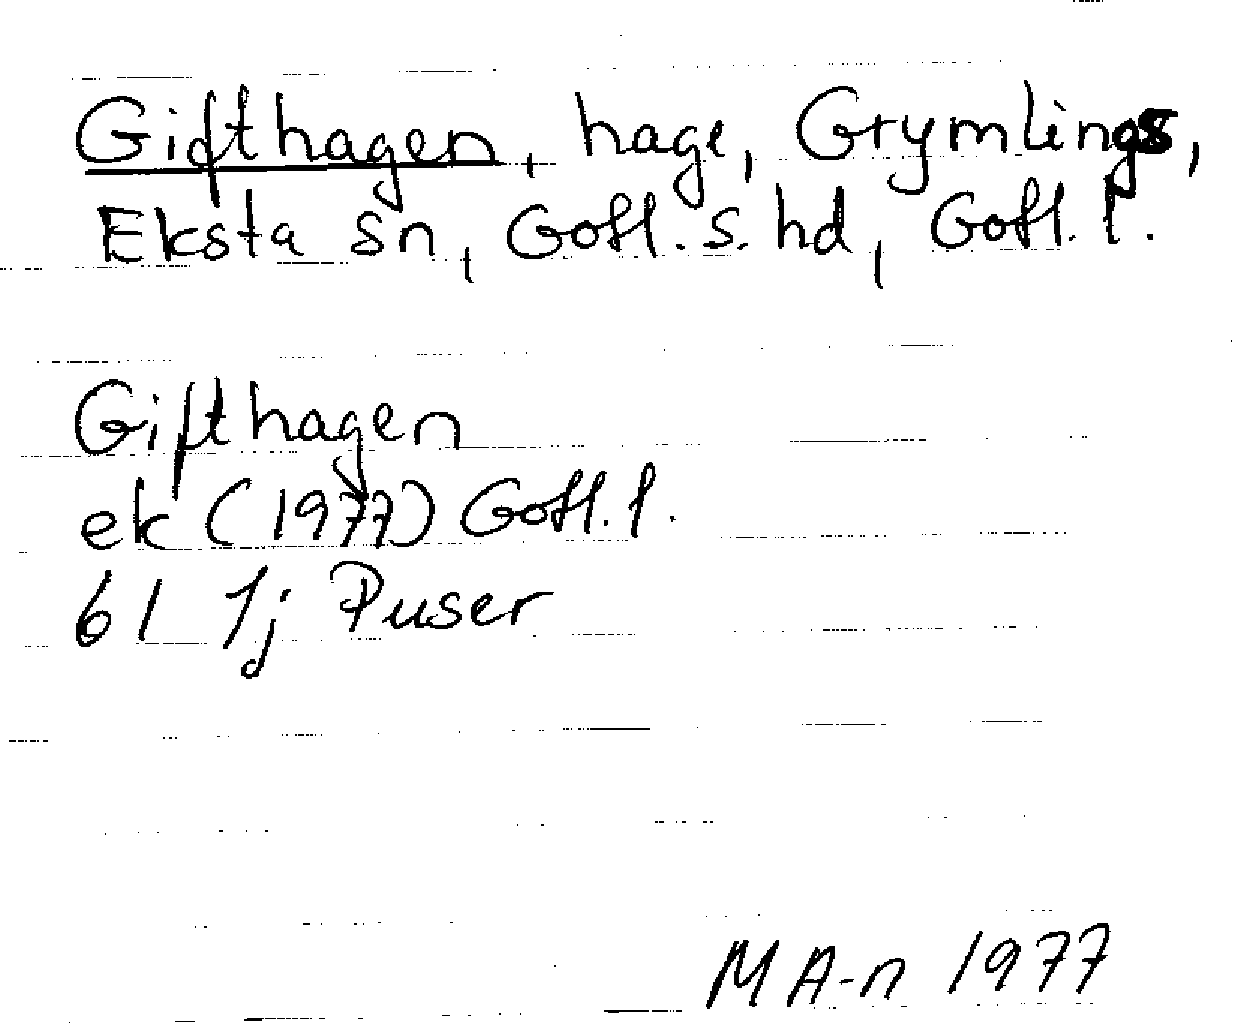 Gifthagen, hage, Grymlings,
Eksta sn, Gotl. s. hd, Gotl. l.
Gifthagen
ek (1977) Gotl. l.
6I 1j Puser
MA-n 1977